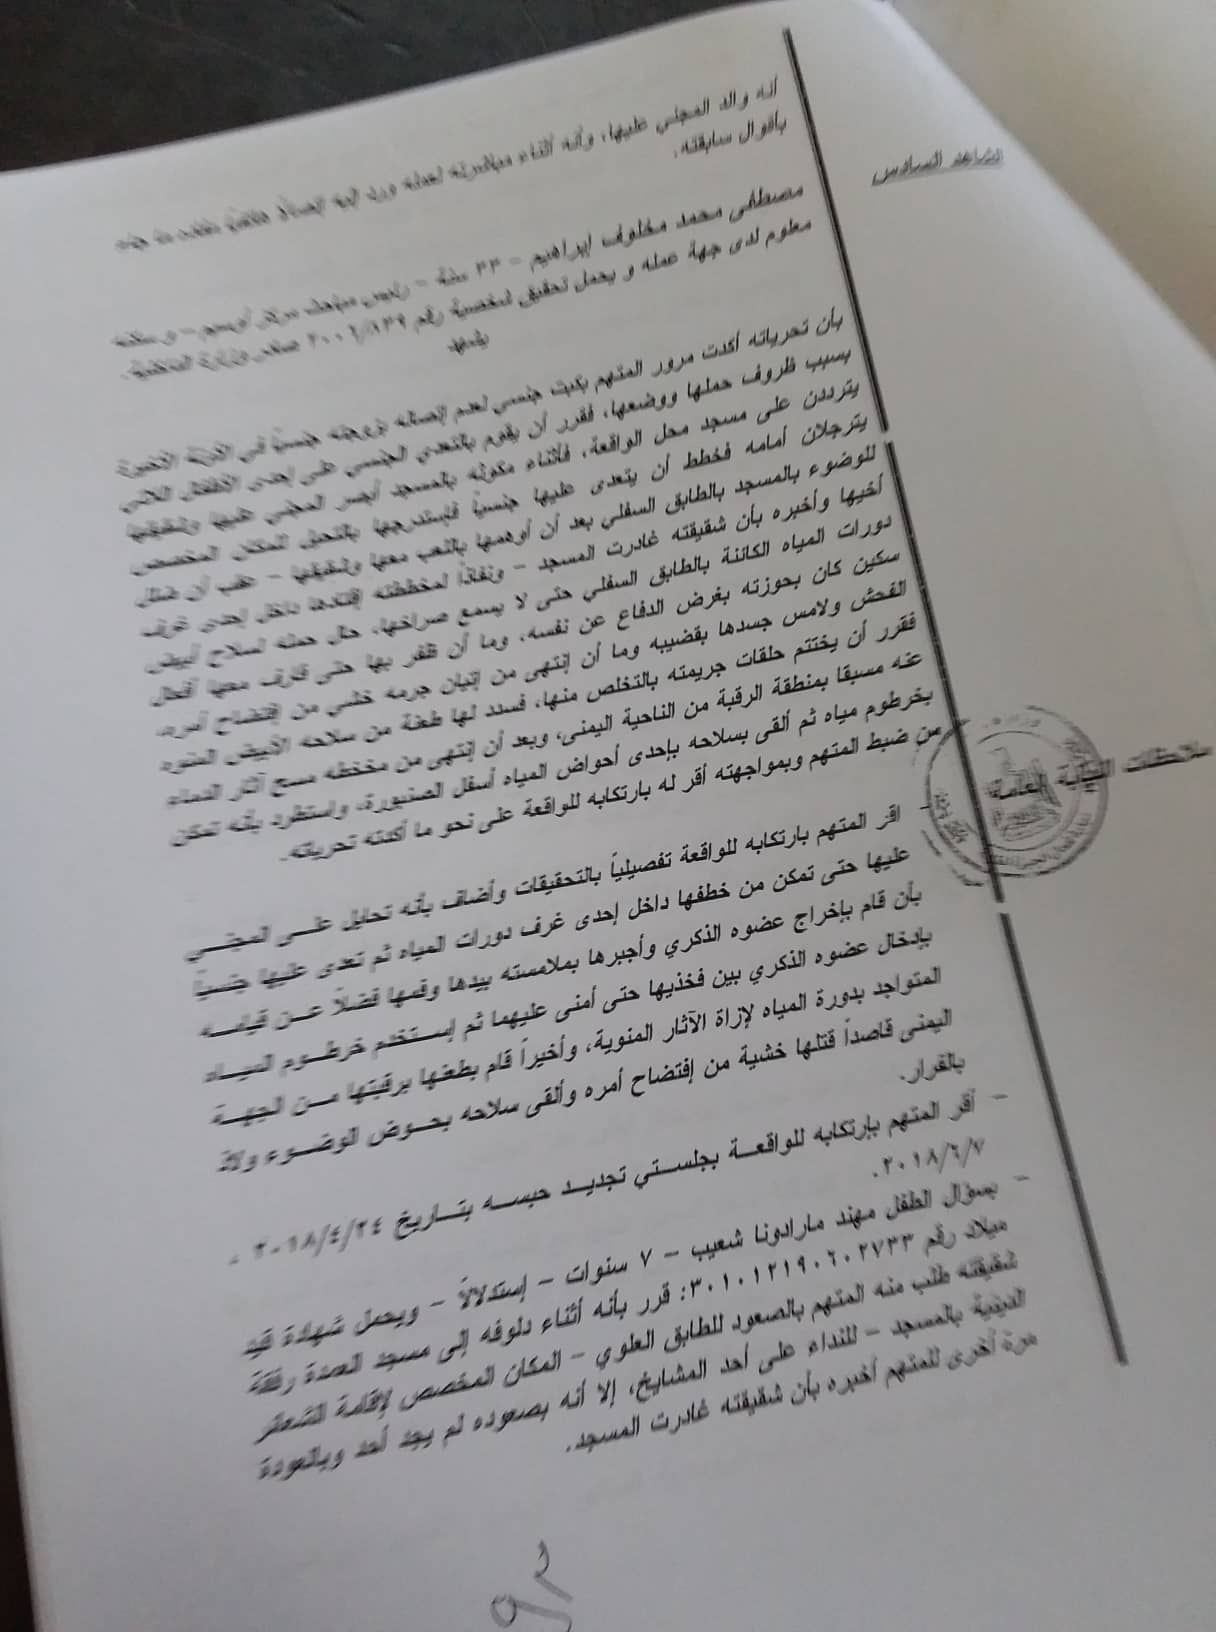 أنه والد المجني عليها، وأنه أثناء مباشرته لعمله ورد إليه إتصالاً هاتفياً
بأقوال سابقته.
الشاهد السادس
مصطفى محمد مخلوف إبراهيم – ٣٣ سنة – رئيس مباحث مركز أوسيم – و سكنه
معلوم لدى جهة عمله و يحمل تحقيق شخصية رقم ٢٠٠٦/١٣٩ صادر وزارة الداخلية.
يشهد
بأن تحرياته أكدت مرور المتهم بكبت جنسي لعدم إتصاله بزوجته جنسياً في الفترة الأخيرة
بسبب ظروف حملها ووضعها، فقرر أن يقوم بالتعدي الجنسي على إحدى الأطفال اللاتي
يترددن على مسجد محل الواقعة، فأثناء مكوثه بالمسجد أبصر المجني عليها وشقيقها
يترجلان أمامه فخطط أن يتعدى عليها جنسياً فإستدرجها بالتحيل للمكان المخصص
للوضوء بالمسجد بالطابق السفلي بعد أن أوهمها باللعب معها وشقيقها – عقب أن ضلل
أخيها وأخبره بأن شقيقته غادرت المسجد – ونفاذاً لمخططته إقتادها داخل إحدى غرف
دورات المياه الكائنة بالطابق السفلي حتى لا يسمع صراخها، حال حمله لسلاح أبيض
سكين كان بحوزته بغرض الدفاع عن نفسه، وما أن ظفر بها حتى قارف معها أفعال
الفحش ولامس جسدها بقضيبه وما أن إنتهى من إتيان جرمه خشي من إفتضاح أمره،
فقرر أن يختتم حلقات جريمته بالتخلص منها، فسدد لها طعنة من سلاحه الأبيض المنوه
عنه مسبقا بمنطقة الرقبة من الناحية اليمنى، وبعد أن إنتهى من مخططه مسح آثار الدماء
بخرطوم مياه ثم ألقى بسلاحه بإحدى أحواض المياه أسفل الصنبورة، واستطرد بأنه تمكن
من ضبط المتهم وبمواجهته أقر له بارتكابه للواقعة على نحو ما أكدته تحرياته.
ملاحظات النيابة العامة
- اقر المتهم بارتكابه للواقعة تفصيلياً بالتحقيقات وأضاف بأنه تحايل على المجني
عليها حتى تمكن من خطفها داخل إحدى غرف دورات المياه ثم تعدى عليها جنسياً
بأن قام بإخراج عضوه الذكري وأجبرها بملامسته بيدها وفمها فضلاً عن قيامه
بإدخال عضوه الذكري بين فخذيها حتى أمنى عليهما ثم إستخدم خرطوم المياه
المتواجد بدورة المياه لإزاة الآثار المنوية، وأخيراً قام بطعنها برقبتها من الجهة
اليمنى قاصداً قتلها خشية من إفتضاح أمره وألقى سلاحه بحوض الوضوء ولاذ
بالفرار.
- أقر المتهم بإرتكابه للواقعة بجلستي تجديد حبسه بتاريخ ٢٠١٨/٤/٢٤ ،
٢٠١٨/٦/٧.
- بسؤال الطفل مهند مارادونا شعيب – ٧ سنوات – إستدلالاً – ويحمل شهادة قيد
ميلاد رقم ٣٠١٠١٢١٩٠٦٠٢٧٣٣: قرر بأنه أثناء دلوفه إلى مسجد العمدة رفقة
شقيقته طلب منه المتهم بالصعود للطابق العلوي – المكان المخصص لإقامة الشعائر
الدينية بالمسجد – للنداء على أحد المشايخ، إلا أنه بصعوده لم يجد أحد وبالعودة
مرة أخرى للمتهم أخبره بأن شقيقته غادرت المسجد.